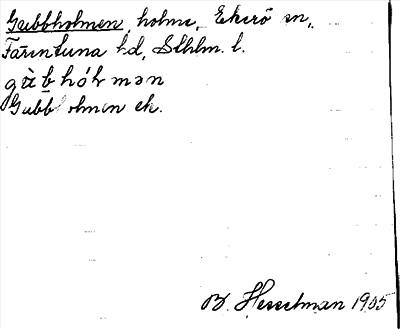 Gubbholmen, holme, Ekerö sn,
Färentuna hd, Sthlm. l.
gùbhół mən
Gubbholmen ek.
B. Hesselman 1905